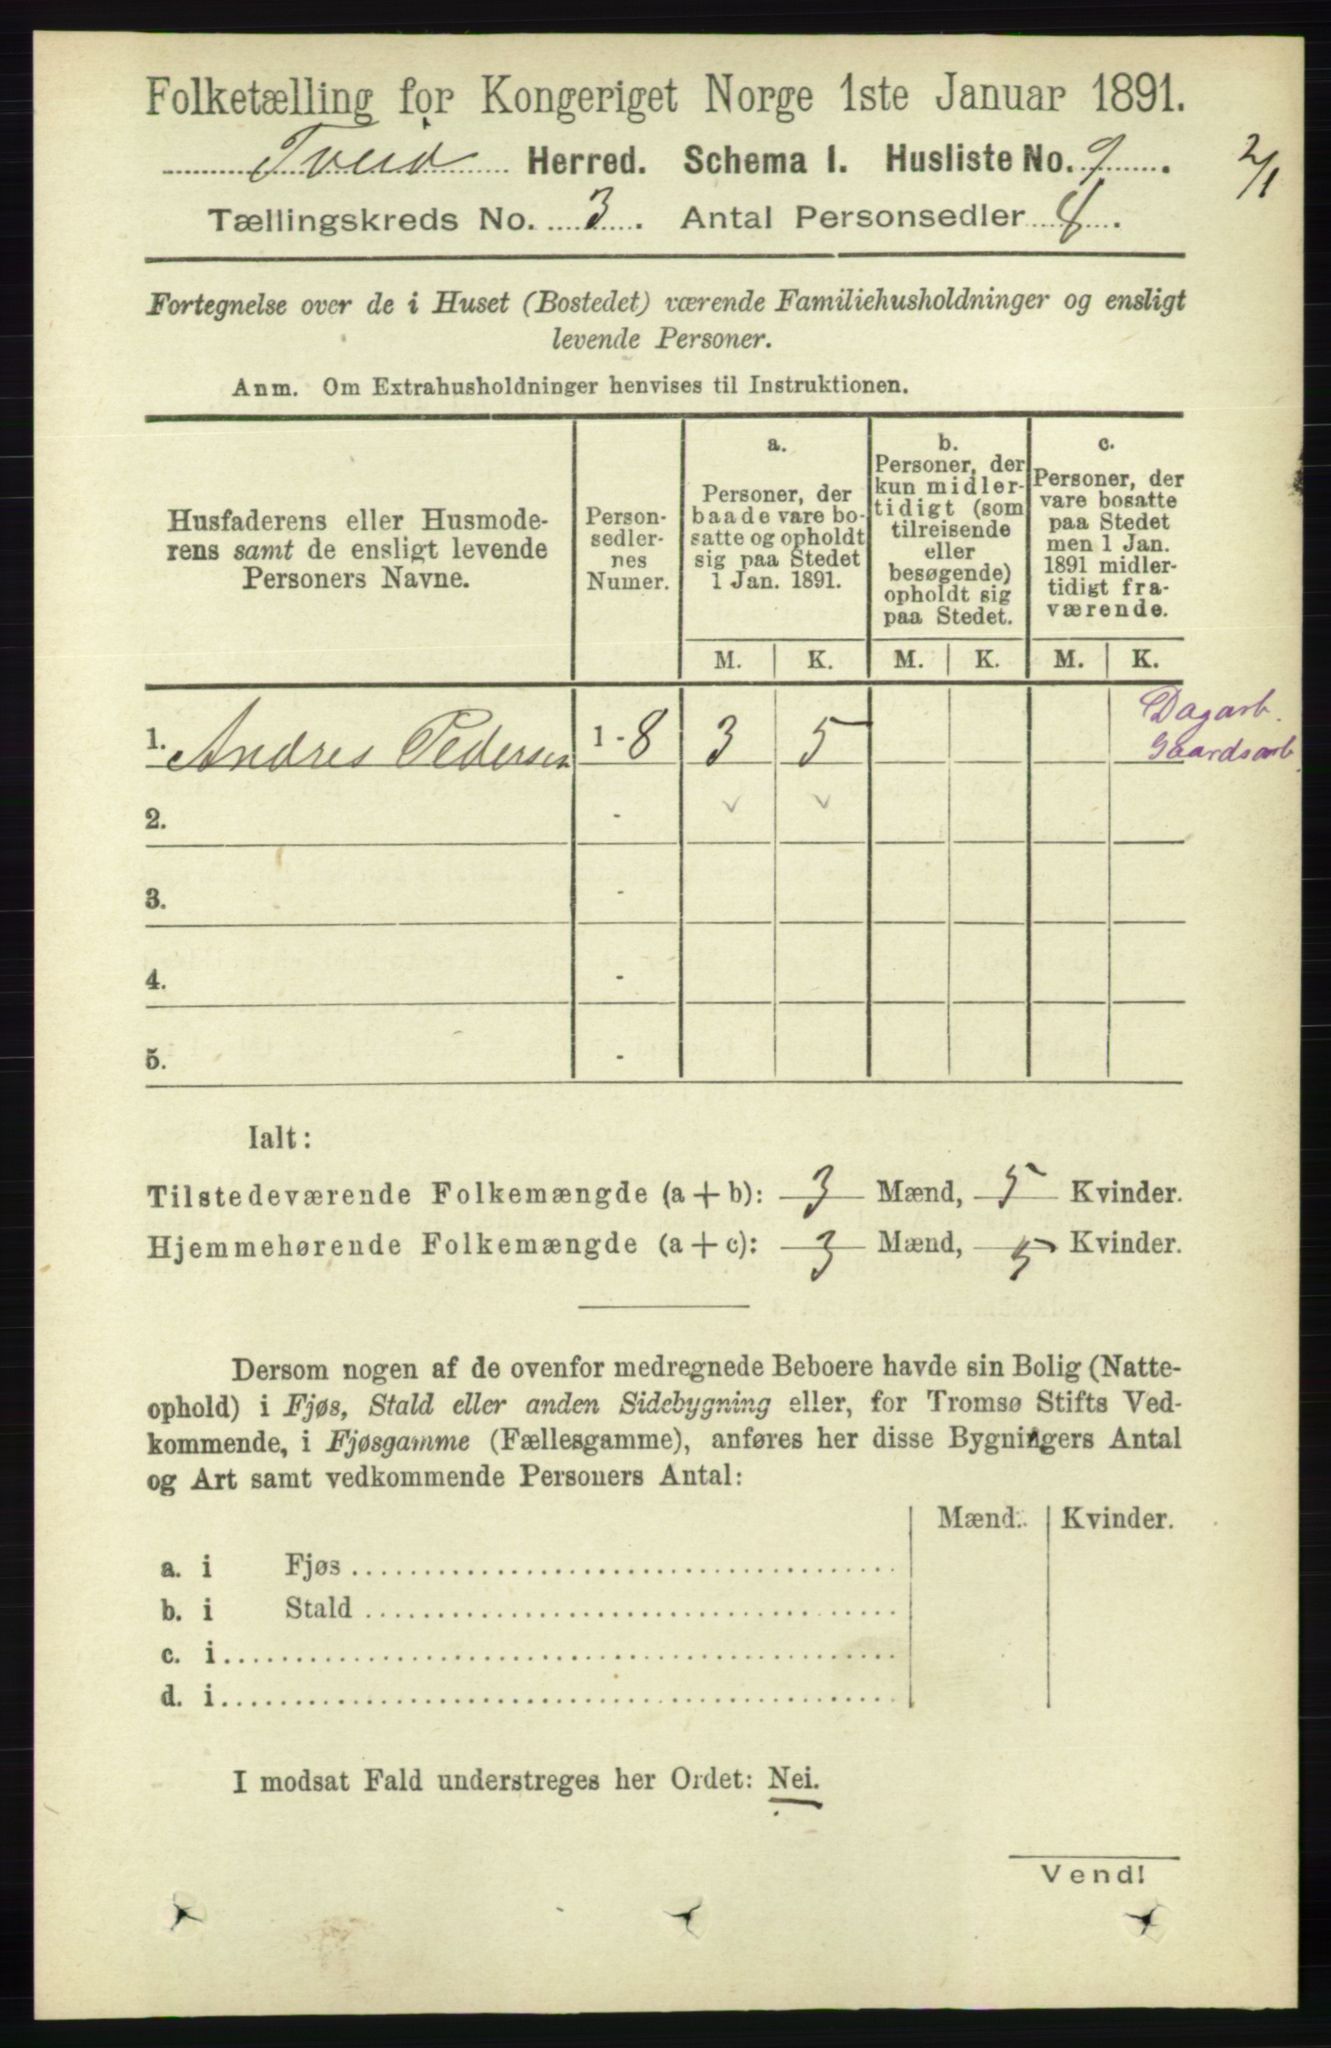 Folketælling for Kongeriget Norge 1ste Januar 1891.
Tveid Herred. Schema 1. Husliste No. 9.
2/1
Tællingskreds No. 3. Antal Personsedler 8.
Fortegnelse over de i Huset (Bostedet) værende Familiehusholdninger og ensligt
levende Personer.
Anm. Om Extrahusholdninger henvises til Instruktionen.
Husfaderens eller Husmode-
rens samt de ensligt levende
Personers Navne.
Person-
sedler-
nes
Numer.
a.
Personer, der
baade vare bo-
satte og opholdt
sig paa Stedet
1 Jan. 1891.
b.
Personer, der
kun midler-
tidigt (som
tilreisende
eller
besøgende)
opholdt sig
paa Stedet.
c.
Personer, der
vare bosatte
paa Stedet
men 1 Jan.
1891 midler-
tidigt fra-
værende.
M. K. M. K. M. K.
1. Andres Pedersen 1-8 3 5
Dagarb.
Gaardsarb
2. -
3. -
4. -
5. -
Ialt:
Tilstedeværende Folkemængde (a+b): 3 Mænd, 5 Kvinder.
Hjemmehørende Folkemængde (a+c): 3 Mænd, 5 Kvinder.
Dersom nogen af de ovenfor medregnede Beboere havde sin Bolig (Natte-
ophold) i Fjøs, Stald eller anden Sidebygning eller, for Tromsø Stifts Ved-
kommende, i Fjøsgamme (Fællesgamme), anføres her disse Bygningers Antal
og Art samt vedkommende Personers Antal:
Mænd. Kvinder.
a. i Fjøs
b. i Stald
c. i
d. i
I modsat Fald understreges her Ordet: Nei.
Vend!